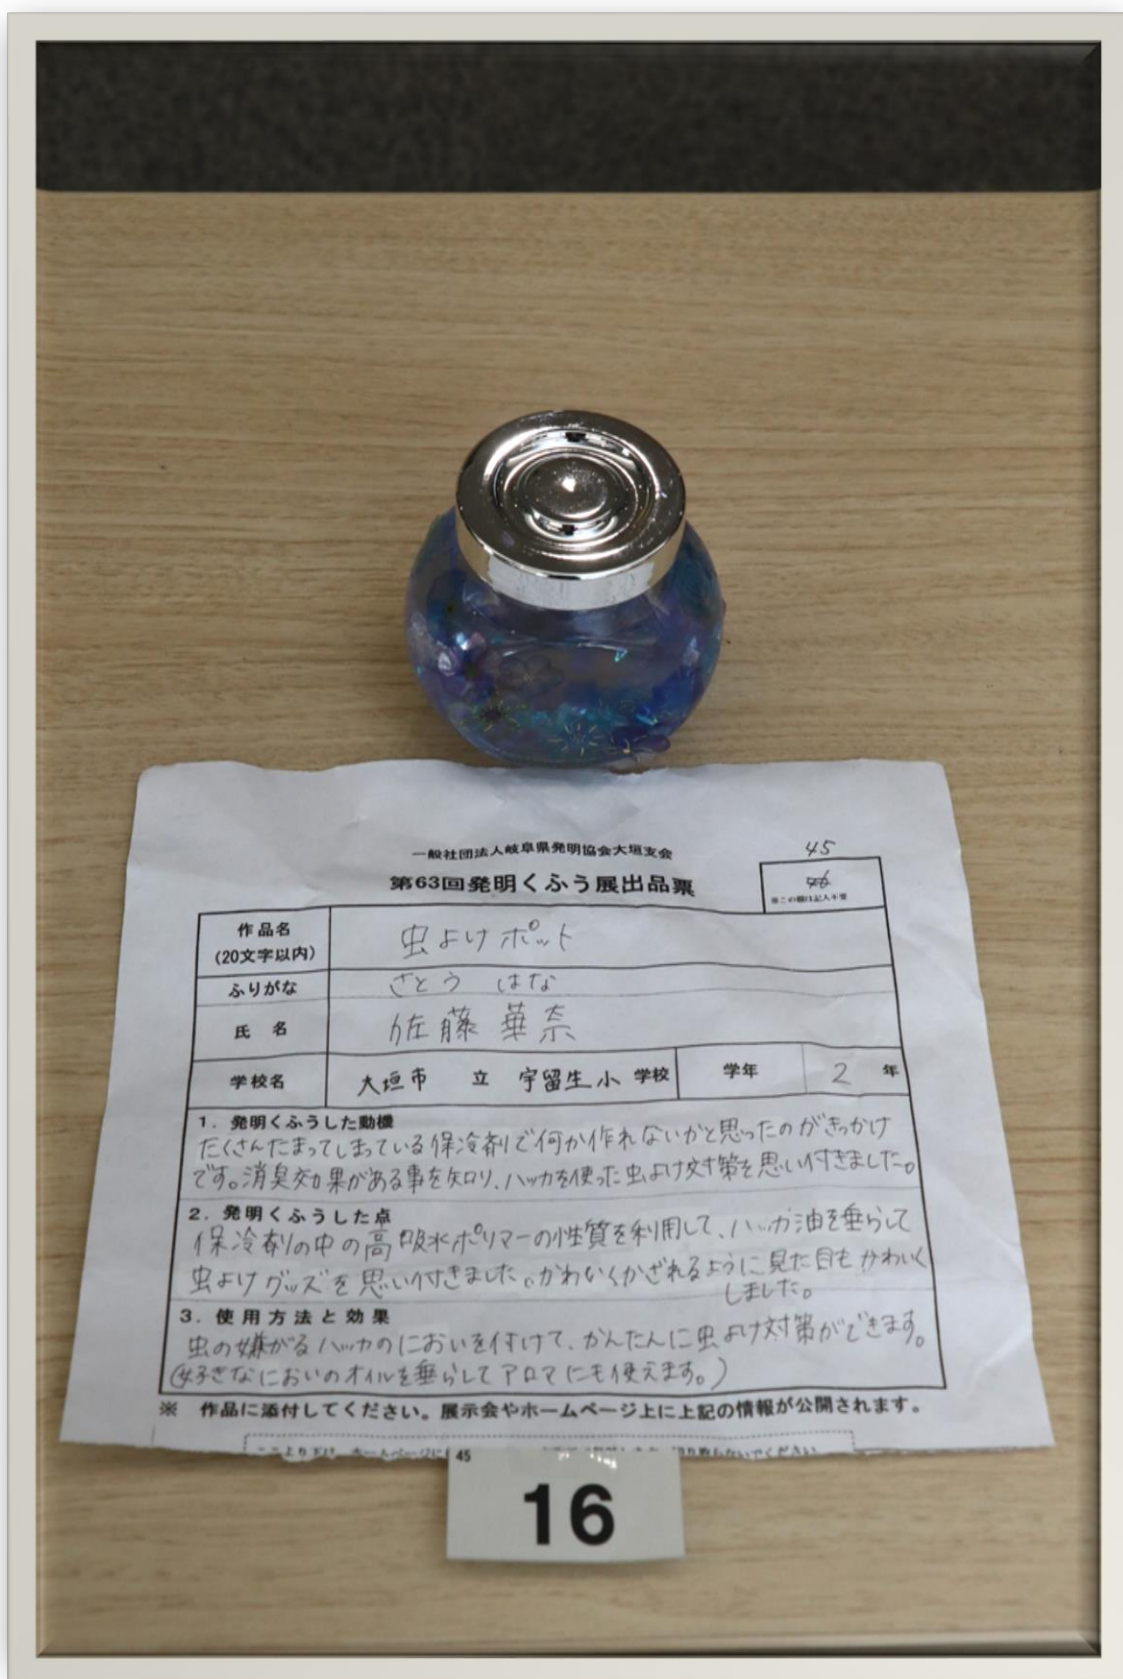 一般社団法人岐阜県発明協会大垣支会
45
第63回発明くふう展出品票
※この欄は記入不要
作品名
(20文字以内)
虫よけポット
ふりがな
さとう はな
氏 名
佐藤 華奈
学校名
大垣市 立 宇留生小 学校
学年
2 年
1. 発明くふうした動機
たくさんたまってしまっている保冷剤で何か作れないかと思ったのがきっかけ
です。消臭効果がある事を知り、ハッカを使った虫よけ対策を思い付きました。
2. 発明くふうした点
保冷剤の中の高吸水ポリマーの性質を利用して、ハッカ油を垂らして
虫よけグッズを思い付きました。かわいくかざれるように見た目もかわいく
しました。
3. 使用方法と効果
虫の嫌がるハッカのにおいを付けて、かんたんに虫よけ対策ができます。
(好きなにおいのオイルを垂らしてアロマにも使えます。)
※ 作品に添付してください。展示会やホームページ上に上記の情報が公開されます。
45
16